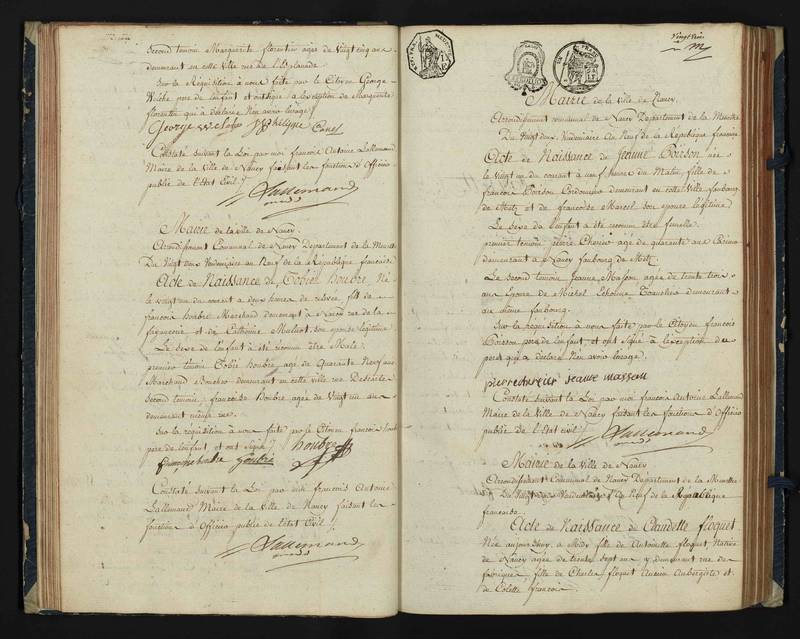 Second temoin Marguerite florentin agée de Vingt cinq ans
demeurant en cette Ville rue de l'Esplanade
Sur la Réquisition à nous faite par le Citoyen George
pere de l'enfant et ont signé à l'exception de Marguerite
florentin qui a déclaré N'en avoir l'usage
George
Constaté suivant la Loi par moi françois Antoine Lallemand
Maire de la Ville de Nancy faisant les fonctions d'Officier
public de l'Etat Civil
Lallemand
Mairie de la ville de Nancy
Arrondissement Communal de Nancy Departement de la Meurthe
Du Vingt deux Vendemiaire an Neuf de la République française
Acte de Naissance de Tobie Houbre, Né
le vingt un du courant a deux heures de relevée, fils de
françois Houbre Marchand demeurant a Nancy rue de la
fayencerie et de Catherine son epouse légitime
Le Sexe de l'enfant à été reconnu être Male
premier temoin Tobie Houbre agé de Quarante Neuf ans
Marchand Boucher demeurant en cette ville rue Descartes
Second temoin francoise Houbre agée de Vingt un ans
demeurant meme rue
Sur la réquisition à nous faite par le Citoyen francois houbre
pere de l'enfant et ont signé houbre
françoise houbre houbre
Constaté suivant la Loi par moi françois Antoine
Lallemand Maire de la Ville de Nancy faisant les
fonctions d'Officier public de l'état Civil
Lallemand
Vingt trois
Mairie de la ville de Nancy
Arrondissement communal de Nancy Departement de la Meurthe
Du Vingt deux Vendemiaire an Neuf de la République française
Acte de Naissance de Jeanne Poirson née
le Vingt un du courant à neuf heures du Matin, fille de
francois Poirson Cordonnier demeurant en cette Ville faubourg
de Metz et de francoise Marcel son epouse légitime
Le Sexe de l'enfant à été reconnu être femelle
premier temoin pierre agé de quarante ans
demeurant a Nancy faubourg de Metz
Le Second temoin Jeanne Masson agée de trente trois
ans Epouse de Michel demeurant
au même faubourg
Sur la réquisition à nous faite par le Citoyen francois
Poirson pere de l'enfant et ont signé à l'exception du
pere qui a déclaré N'en avoir l'usage
pierre jeanne masson
Constaté suivant la Loi par moi francois Antoine Lallemand
Maire de la Ville de Nancy faisant les fonctions d'Officier
public de l'Etat civil
Lallemand
Mairie de la Ville de Nancy
Arrondissement Communal de Nancy Departement de la Meurthe
Du Vingt deux Vendemiaire an Neuf de la République
francaise
Acte de Naissance de Claudette floquet
Née aujourd'huy a Midy fille de Antoinette floquet, Native
de Nancy agée de trente sept ans y demeurant rue des
fabriques, fille de Charles floquet Ancien Aubergiste et
de Colette francois